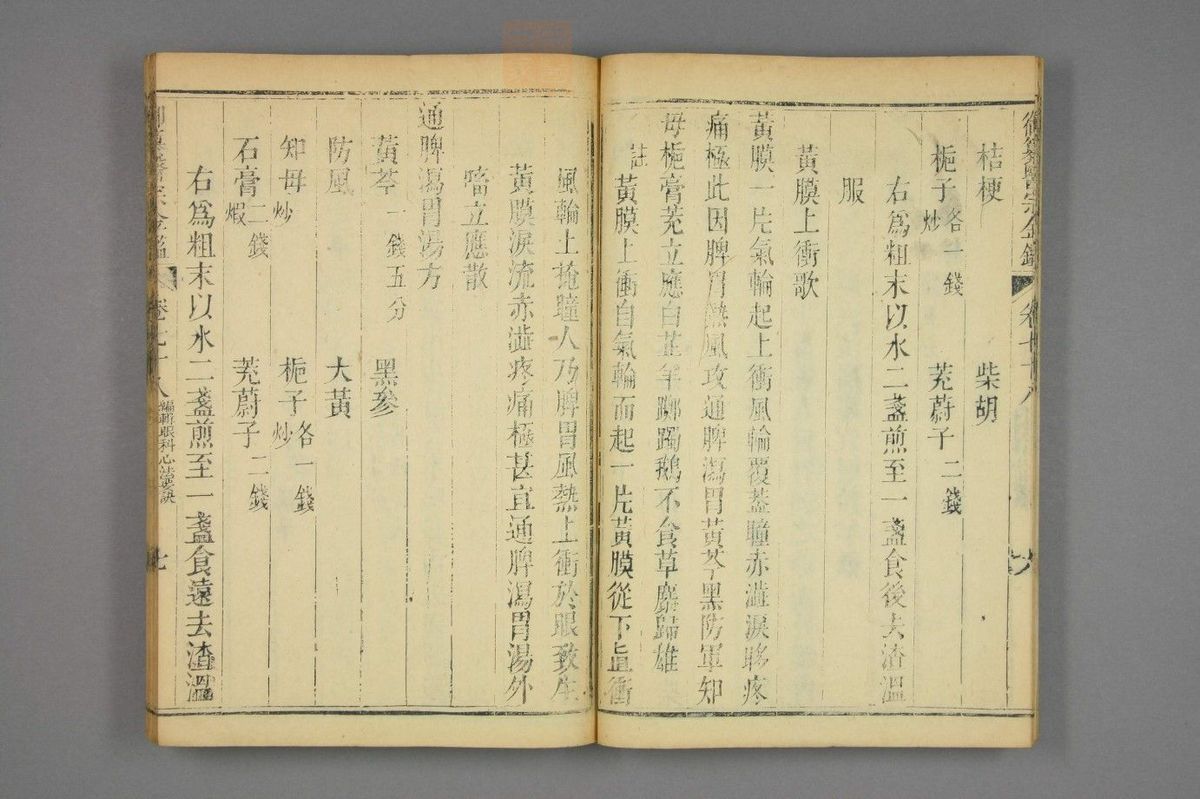 御纂醫宗金鑑 卷七十八 六
桔梗 柴胡
梔子炒 各一錢 茺蔚子二錢
右爲粗末以水二盞煎至一盞食後去渣溫
服
黃膜上衝歌
黃膜一片氣輪起上衝風輪覆蓋瞳赤澁淚眵疼
痛極此因脾胃熱風攻通脾瀉胃黃芩黑防軍知
母梔膏茺立應白芷羊躑躅鵝不食草麝歸雄
註 黃膜上衝自氣輪而起一片黃膜從下直衝
風輪上掩瞳人乃脾胃風熱上衝於眼致生
黃膜淚流赤澁疼痛極甚宜通脾瀉胃湯外
㗜立應散
通脾瀉胃湯方
黃芩一錢五分 黑參
防風 大黃
知母炒 梔子炒 各一錢
石膏煆 二錢 茺蔚子二錢
右爲粗末以水二盞煎至一盞食遠去渣溫
醫宗金鑑 卷七十八 編輯眼科心法要訣 七